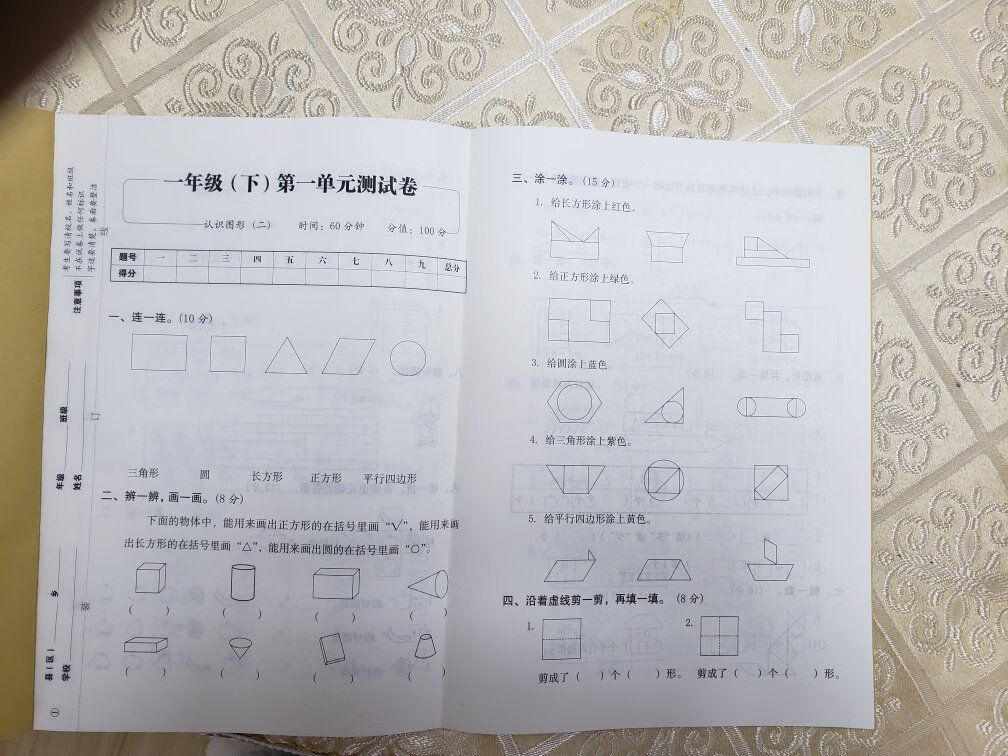 考生要写清校名、姓名和班级
不在试卷上做任何标识
字迹要清楚,卷面要整洁
注意事项
线
订
装
年级
班级
姓名
县(区)
乡
学校
①
一年级(下)第一单元测试卷
认识图形(二) 时间:60分钟 分值:100分
题号 一 二 三 四 五 六 七 八 九 总分
得分
一、连一连。(10分)
三角形 圆 长方形 正方形 平行四边形
二、辨一辨,画一画。(8分)
下面的物体中,能用来画出正方形的在括号里画“√”,能用来画
出长方形的在括号里画“△”,能用来画出圆的在括号里画“○”。
( ) ( ) ( ) ( )
( ) ( ) ( ) ( )
三、涂一涂。(15分)
1. 给长方形涂上红色。
2. 给正方形涂上绿色。
3. 给圆涂上蓝色。
4. 给三角形涂上紫色。
5. 给平行四边形涂上黄色。
四、沿着虚线剪一剪,再填一填。(8分)
1. 2.
剪成了( )个( )形。 剪成了( )个( )形。